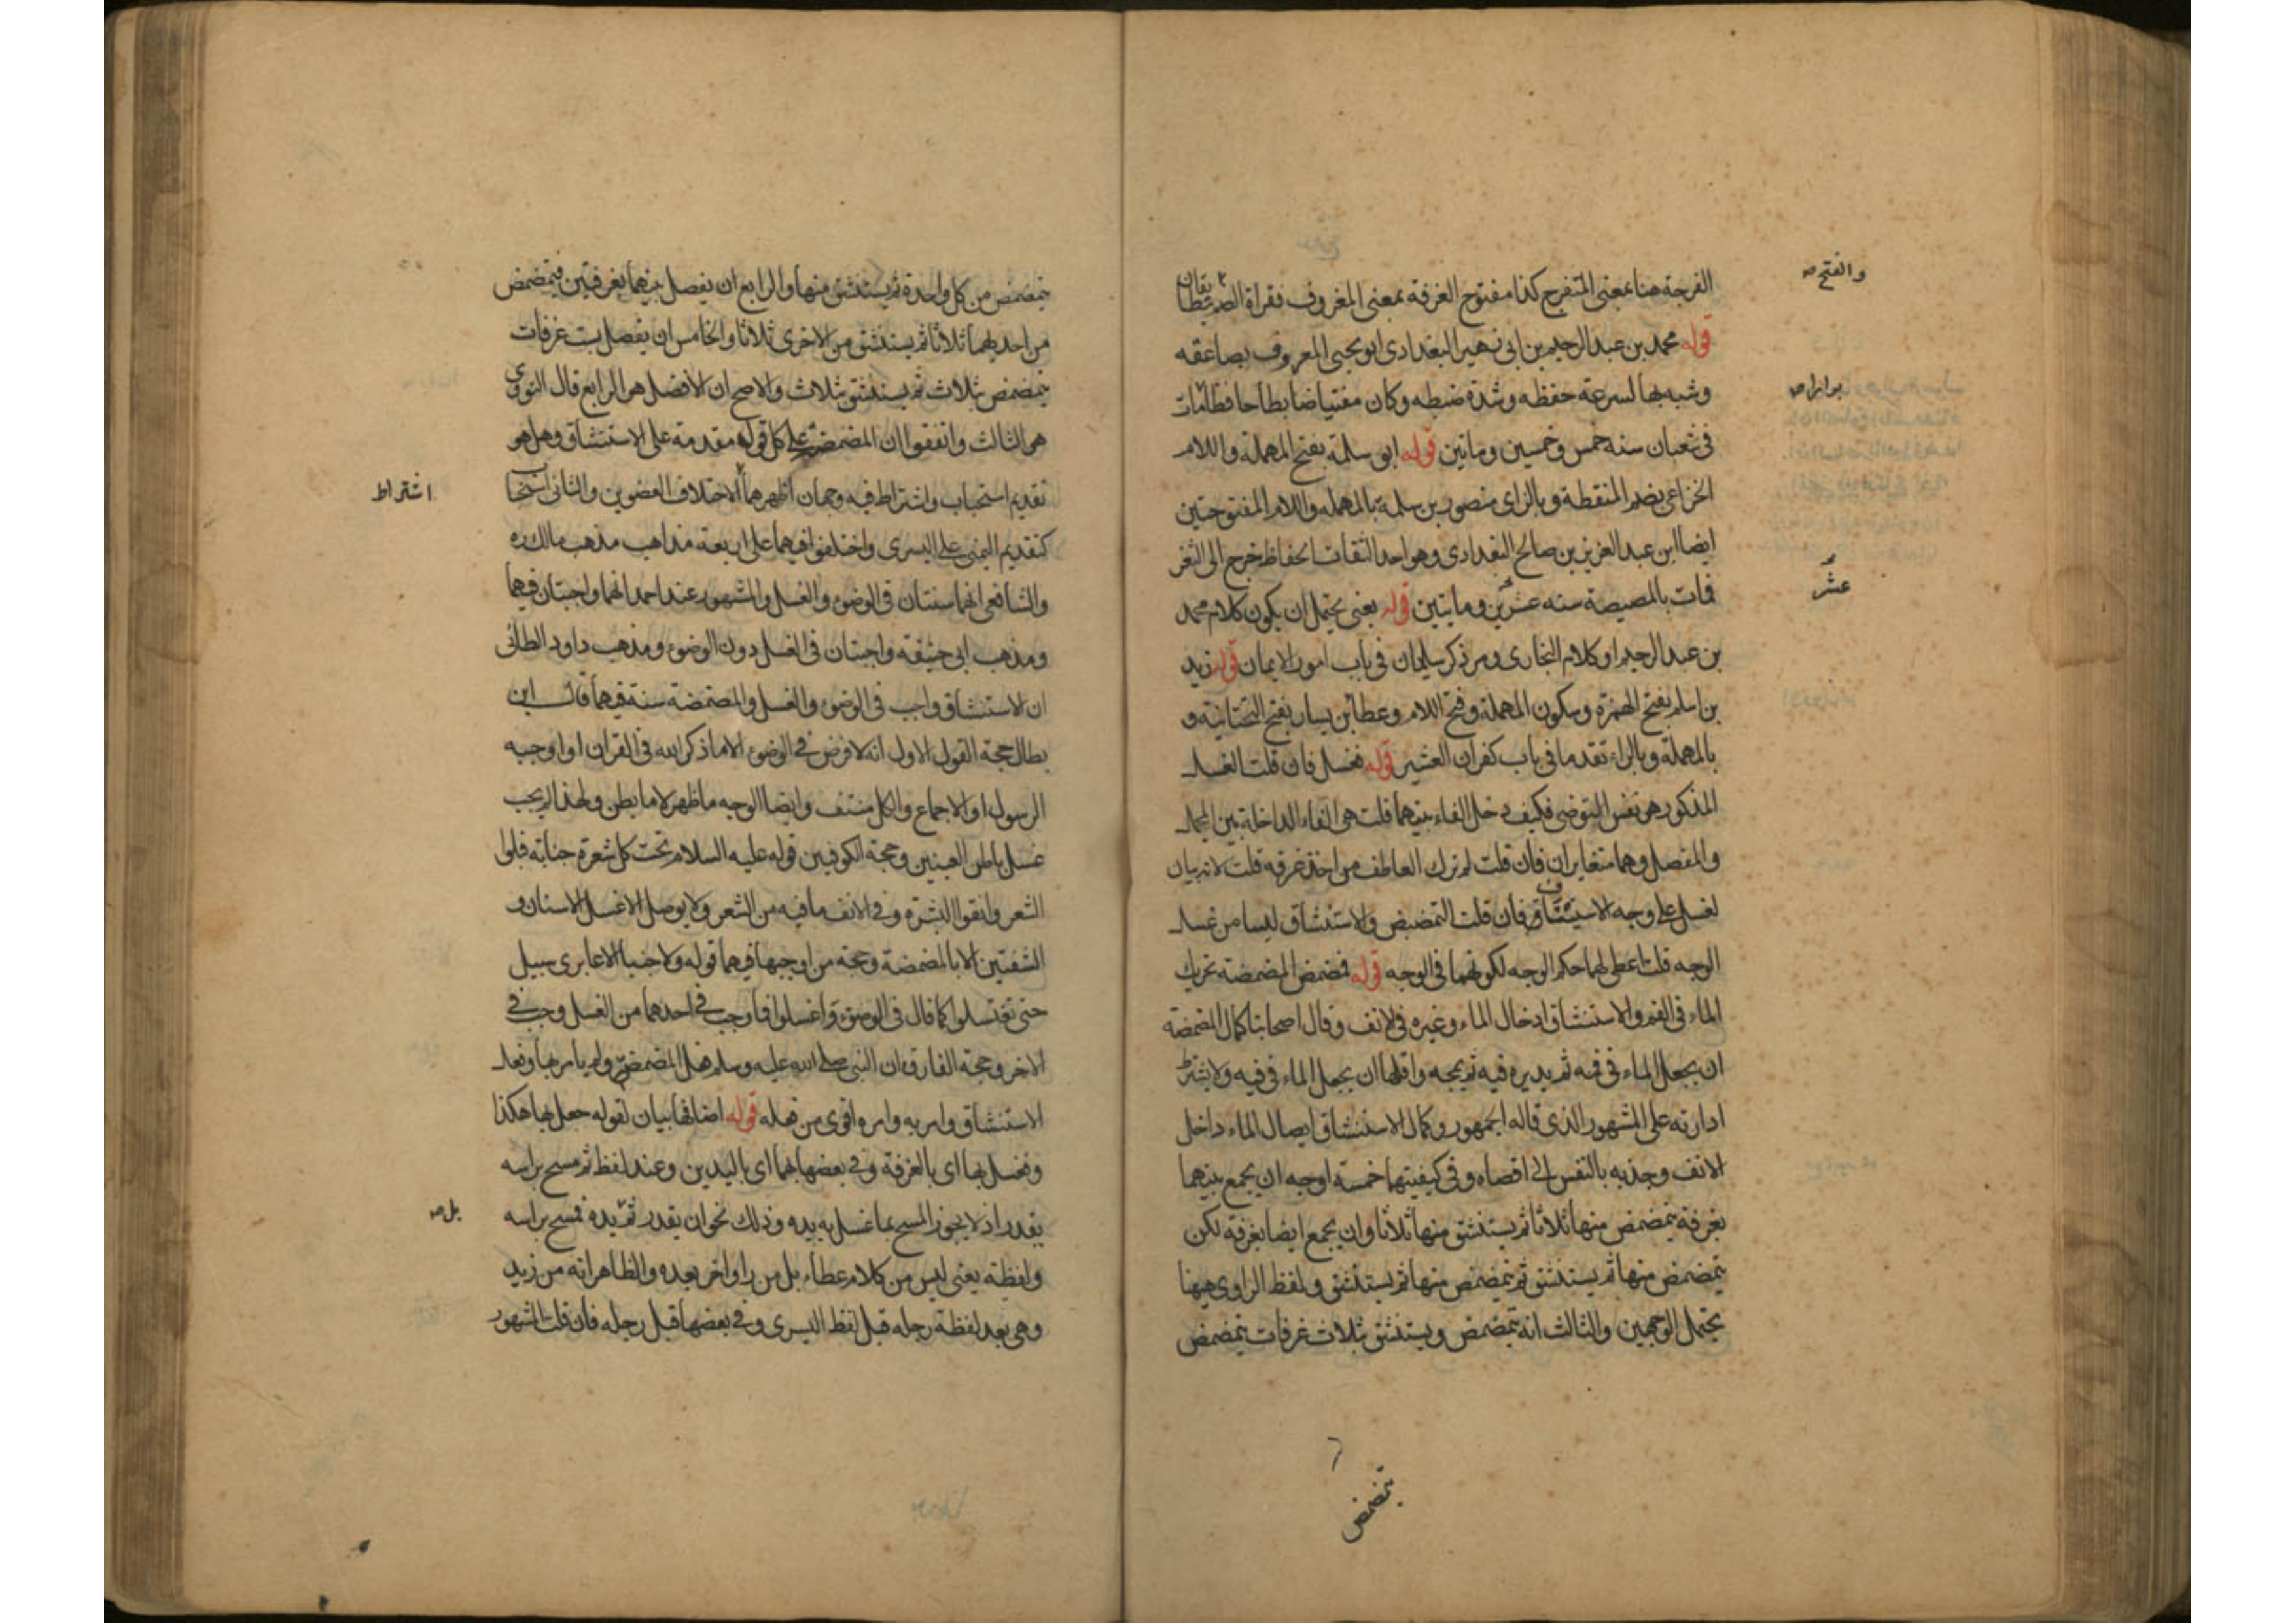 الفرجة هنا بمعنى المتفرج كذا مفتوح الغرفة بمعنى المغروف فقراة الضم يتطابقان
والفتح صه
قوله محمد بن عبد الرحيم بن ابى زهير البغدادى ابو يحيى المعروف بصاعقه
وشبه بها لسرعة حفظه وشدة ضبطه وكان مفتيا ضابطا حافظا مات
بزازا صه
فى شعبان سنه خمس وخمسين وماتين قوله ابو سلمة بفتح المهملة واللام
الخزاعى بضم المنقطة وبالزاى منصور بن سلمة بالمهمله واللام المفتوحتين
ايضا ابن عبد العزيز بن صالح البغدادى وهو احد الثقات الحفاظ خرج الى الثغر
فمات بالمصيصة سنه عشرين وماتيتين قوله يعنى يحتمل ان يكون كلام محمد
عشر
بن عبد الرحيم او كلام البخارى ومر ذكر سليمان فى باب امور الايمان قوله زيد
بن اسلم بفتح الهمزة وسكون المهملة وفتح اللام وعطا بن يسار بفتح التحتانية و
بالمهملة وبالراء تقدما فى باب كفران العشير قوله فغسل فان قلت الغسل
المذكور هو نفس التوضى فكيف دخل الفاء بينهما قلت هى الفاء الداخلة بين المجمل
والمفصل وهما متغايران فان قلت لم ترك العاطف من اخذ غرفه قلت لانه بيان
لغسل على وجه الاستيناف فان قلت التمضمض والاستنشاق ليسا من غسل
الوجه قلت اعطى لهما حكم الوجه لكونهما فى الوجه قوله فمضمض المضمضة تحريك
الماء فى الفم والاستنشاق ادخال الماء وغيره فى الانف وقال اصحابنا كمال المضمضة
ان يجعل الماء فى فمه ثم يديره فيه ثم يمجه واقلها ان يجعل الماء فى فيه ولا يشترط
ادارته على المشهور الذى قاله الجمهور وكمال الاستنشاق ايصال الماء داخل
الانف وجذبه بالنفس الى اقصاه وفى كيفيتهما خمسة اوجه ان يجمع بينهما
بغرفة يتمضمض منها ثلاثا ثم يستنشق منها ثلاثا وان يجمع ايضا بغرفة لكن
يتمضمض منها ثم يستنشق ثم يتمضمض منها ثم يستنشق ولفظ الراوى ههنا
يحتمل الوجهين والثالث انه يتمضمض ويستنشق بثلاث غرفات يتمضمض
يتمضمض
يتمضمض من كل واحدة ثم يستنشق منها والرابع ان يفصل بينهما بغرفتين فيتمضمض
من احديهما ثلاثا ثم يستنشق من الاخرى ثلاثا والخامس ان يفصل بست غرفات
يتمضمض بثلاث ثم يستنشق بثلاث والاصح ان الافضل هو الرابع قال النووى
هو الثالث واتفقوا ان المضمضة على كل قول مقدمة على الاستنشاق وهل هو
تقديم استحباب واشتراط فيه وجهان اظهرهما لاختلاف العضوين والثانى استحبا
اشتراط
كتقديم اليمنى على اليسرى واختلفوا فيهما على اربعة مذاهب مذهب مالك ره
والشافعى انهما سنتان فى الوضوء والغسل والمشهور عند احمد انهما واجبتان فيهما
ومذهب ابى حنيفه واجبتان فى الغسل دون الوضوء ومذهب داود الطائى
ان الاستنشاق واجب فى الوضوء والغسل والمضمضة سنة فيهما قال ابن
بطال حجة القول الاول انه لا فرض فى الوضوء الا ما ذكر الله فى القران او اوجبه
الرسول او الاجماع والكل منتف وايضا الوجه ما ظهر لا ما يطن ولهذا لم يجب
غسل باطن العينين وحجة الكوفيين قوله عليه السلام تحت كل شعرة جنابة فبلوا
الشعر وانقوا البشرة وفى الانف ما فيه من الشعر ولا يوصل الا غسل الاسنان و
الشفتين الا بالمضمضة وحجة من اوجبها فيهما قوله ولا جنبا الا عابرى سبيل
حتى تغتسلوا كما قال فى الوضوء واغسلوا فما وجب فى احدهما من الغسل وجب فى
الاخر وحجة الفارق ان النبى صلى الله عليه وسلم فعل المضمضة ولم يامر بها وفعل
الاستنشاق وامر به وامره اقوى من فعله قوله اضافها بيان لقوله جعل بها هكذا
وغسل بها اى بالغرفة وفى بعضها بهما اى باليدين وعند لفظ ثم مسح براسه
يقدر اذ لا يجوز المسح بما غسل به يده وذلك نحو ان يقدر ثم يده فمسح براسه
بل صه
ولفظة يعنى ليس من كلام عطاء بل من راو اخر بعده والظاهر انه من زيد
وهى بعد لفظة رجله قبل لفظ اليسرى وفى بعضها قبل رجله فان قلت المشهور